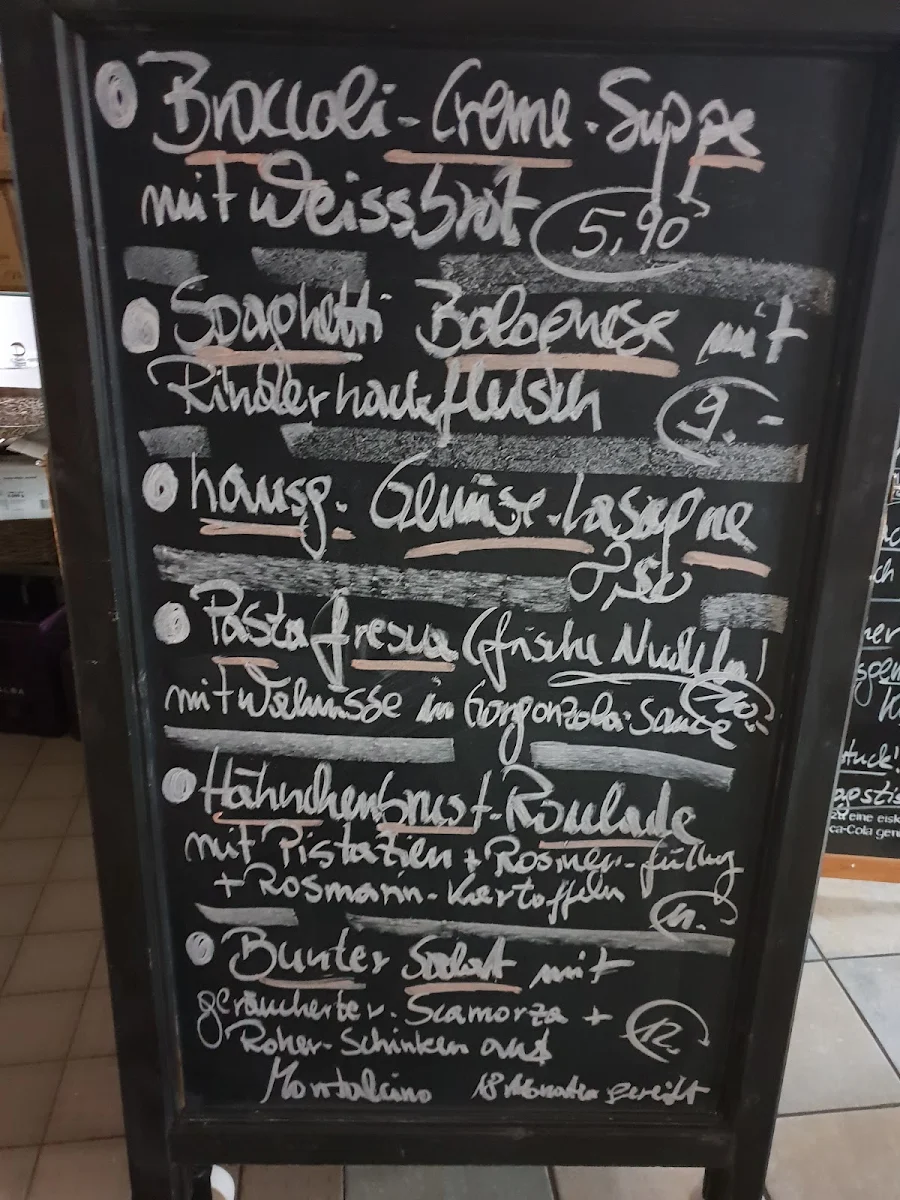 Broccoli-Creme-Suppe
mit Weissbrot 5,90
Spaghetti Bolognese mit
Rinderhackfleisch 9.-
hausg. Gemüse-Lasagne
Pasta fresca (frische Nudeln)
mit Walnüsse in Gorgonzola-Sauce
Hähnchenbrust-Roulade
mit Pistazien + Rosinen-füllung
+ Rosmarin-Kartoffeln
Bunter Salat mit
geräucherter. Scamorza + 12.
Roher-Schinken aus
Montalcino 18 Monaten gereift